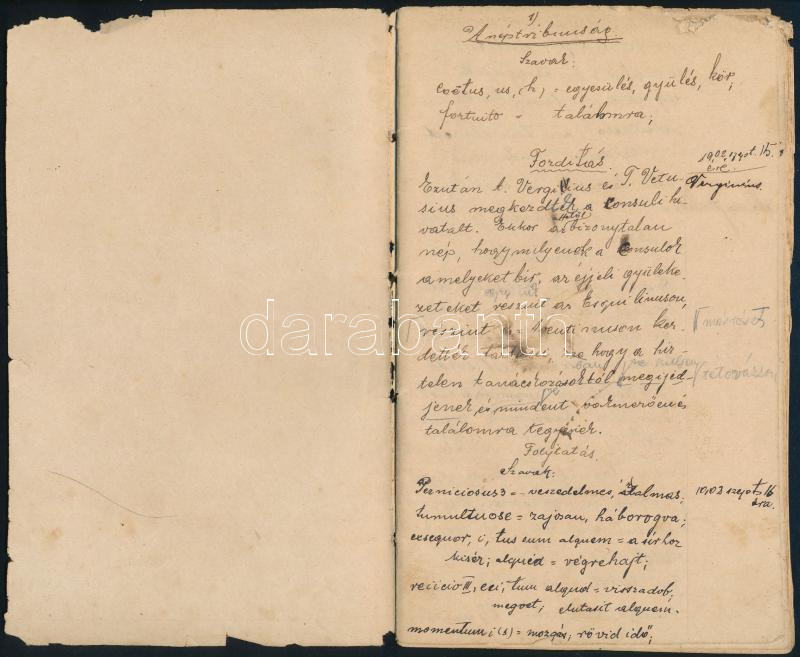 1)
A néptribunság.
Szavak:
coëtus, us, (h) = egyesülés, gyülés, kör;
fortuito = találomra;
Fordítás
1902 szept. 15.
óra.
Ezután A. Verginius és T. Vetu-
Verginius.
sius megkezdték a consuli hi-
vatalt. Ekkor a bizonytalan
nép, hogy milyenek a consulok
amelyeket bir, az éjjeli gyüleke-
zeteket részint az Esquilinuson,
részint Aventinuson kez-
dették tartani, hogy a hir-
telen tanácskozásoktól megijed-
jenek és mindent vakmerően és
találomra tegyenek.
Folytatás.
Szavak:
Perniciosus 3 = veszedelmes, ártalmas.
1902 szept 16
óra.
tumultuose = zajosan, háborogva;
exsequor, i, tus sum alquem = a sírhoz
kisér; alquid = végrehajt;
reiicio III, eci, tum alquid = visszadob,
megvet, elutasit alquem.
momentum i (s) = mozgás; rövid idő;
darabanth